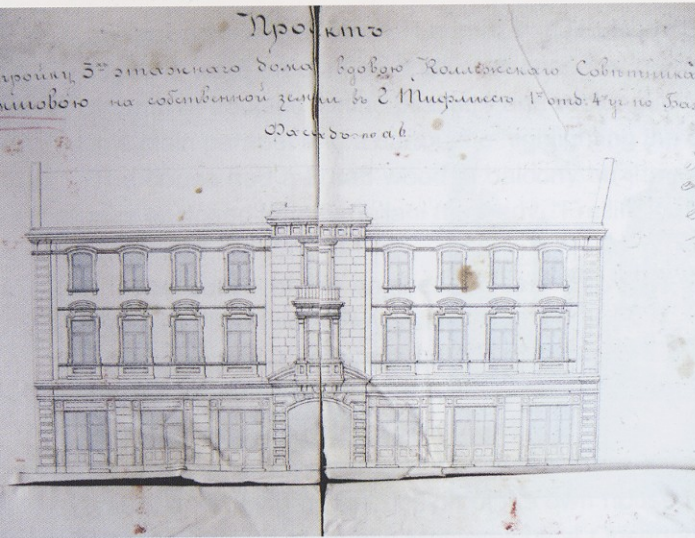 Проектъ
тройку 3хъ этажнаго дома вдовою Коллежскаго Совѣтника
на собственной земли въ г. Тифлисѣ 1го отд. 4 уч. по Ба
Фасадъ по a, b.